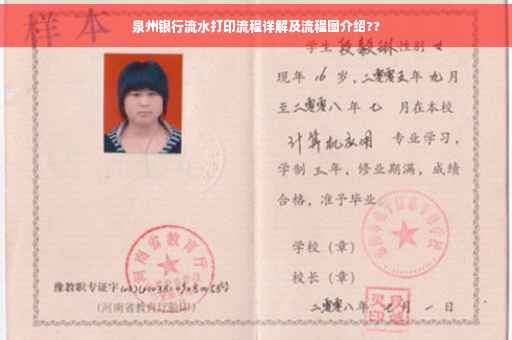 泉州银行流水打印流程详解及流程图介绍??
样本
学生段毅琳性别女
现年16岁,二零零五年九月
至二零零八年七月在本校
计算机应用 专业学习,
学制三年,修业期满,成绩
合格,准予毕业
学校(章)
校长(章)
二零零八年七月一日
河南省教育厅
豫教职专证字
(河南省教育厅验印)